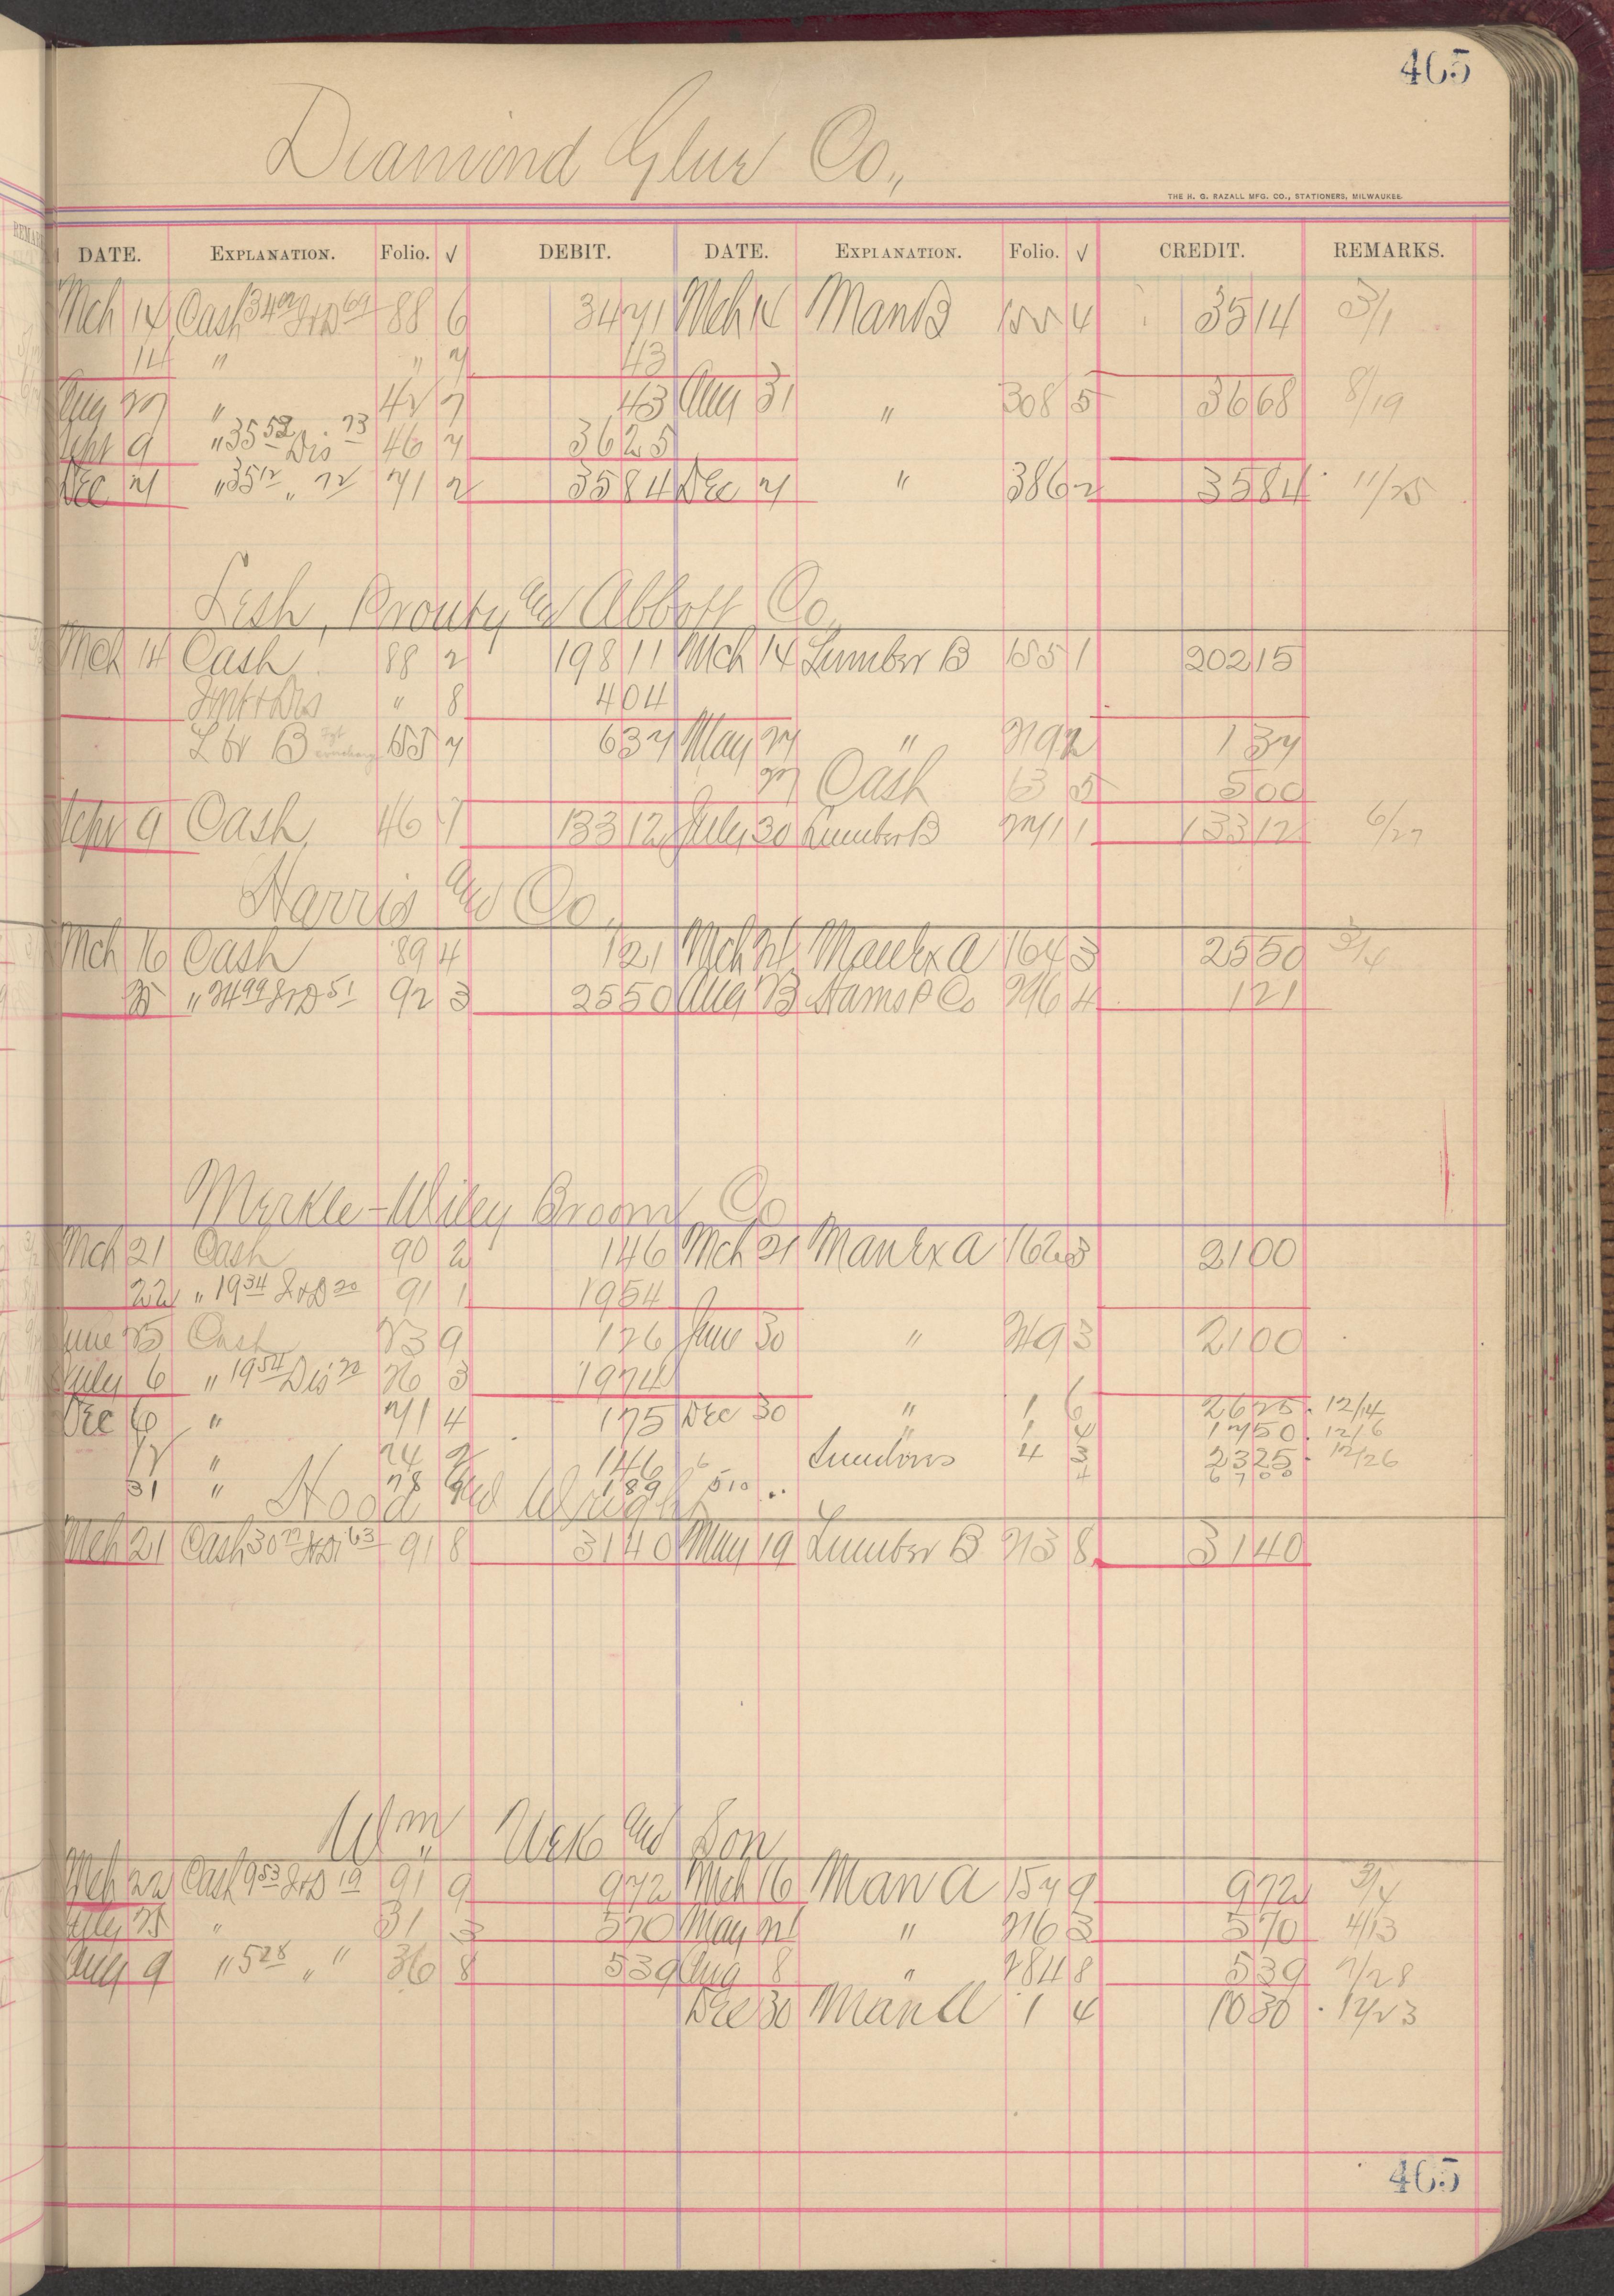 465
Diamond Glue Co.,
THE H. G. RAZALL MFG. CO., STATIONERS, MILWAUKEE.
DATE. EXPLANATION. Folio. √ DEBIT. DATE. EXPLANATION. Folio. √ CREDIT. REMARKS.
Mch 14 Cash 88 6 3471 Mch 14 Man B 155 4 3514 3/1
14 " " 7 43
Aug 27 " 42 7 43 Aug 31 " 308 5 3668 8/19
Sept 9 " 35 52 Dis 73 46 7 3625
Dec 21 " 35 12 " 72 71 2 3584 Dec 21 " 386 2 3584 11/25
Lesh, Prouty and Abbott Co.,
Mch 14 Cash 88 2 19811 Mch 14 Lumber B 155 1 20215
Int & Dis " 8 404
L br B 155 7 637 May 27 " 219 2 137
27 Cash 13 5 500
Sept 9 Cash 46 7 13312 July 30 Lumber B 271 1 13312 6/27
Harris and Co.,
Mch 16 Cash 89 4 121 Mch 21 Man Ex A 164 3 2550 3/4
25 " 24 99 I&D 51 92 3 2550 Aug 23 Harris P Co 296 4 121
Merkle-Wiley Broom Co
Mch 21 Cash 90 2 146 Mch 21 Man Ex A 162 3 2100
22 " 19 34 I&D 20 91 1 1954
June 25 Cash 23 9 126 June 30 " 249 3 2100
July 6 " 19 54 Dis 20 26 3 1974
Dec 6 " 71 4 175 Dec 30 " 1 6 2625 12/14
1 4 1750 12/6
17 " 74 2 146 6 Sundries 4 3 2325 12/26
31 " 78 189 510 4 6700
Hood and Wright
Mch 21 Cash 30 77 I&D 63 91 8 3140 May 19 Lumber B 213 8 3140
Wm and Son
Mch 22 Cash 9 53 I&D 19 91 9 972 Mch 16 Man A 157 9 972 3/4
July 25 " 31 3 570 May 21 " 216 3 570 4/13
Aug 9 " 5 28 " " 36 8 539 Aug 8 " 284 8 539 7/28
Dec 30 Man A 1 4 1030 12/23
465